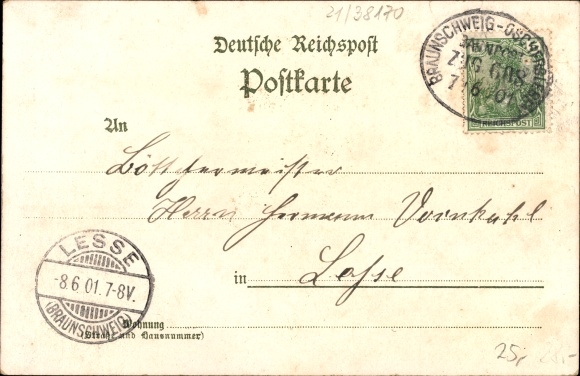 21/38170
Deutsche Reichspost
Postkarte
BRAUNSCHWEIG-OSCHERSLEBEN
BAHNPOST
ZUG
7 6 01
REICHSPOST
An
Böttchermeister
Herrn Hermann Vornkahl
in Lesse
LESSE
-8.6.01.7-8V.
(BRAUNSCHWEIG)
Wohnung
(Straße und Hausnummer)
25,-